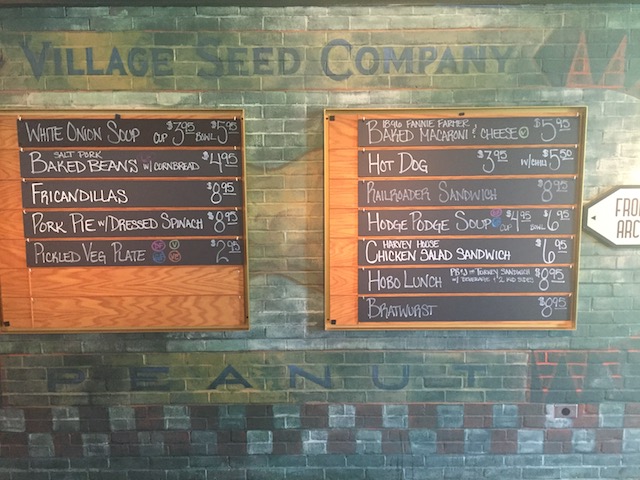 VILLAGE SEED COMPANY
WHITE ONION SOUP CUP $3.95 BOWL $5.95
SALT PORK
BAKED BEANS W/ CORNBREAD $4.95
FRICANDILLAS $8.95
PORK PIE W/ DRESSED SPINACH $8.95
PICKLED VEG PLATE $2.95
1896 FANNIE FARMER
BAKED MACARONI & CHEESE V $5.95
HOT DOG $3.95 W/CHILI $5.50
RAILROADER SANDWICH $8.95
HODGE PODGE SOUP $4.95 CUP $6.95 BOWL
HARVEY HOUSE
CHICKEN SALAD SANDWICH $6.95
HOBO LUNCH PB&J OR TURKEY SANDWICH $8.95
W/ BEVERAGE & 2 KID SIDES
BRATWURST $8.95
FRO
ARC
PEANUT